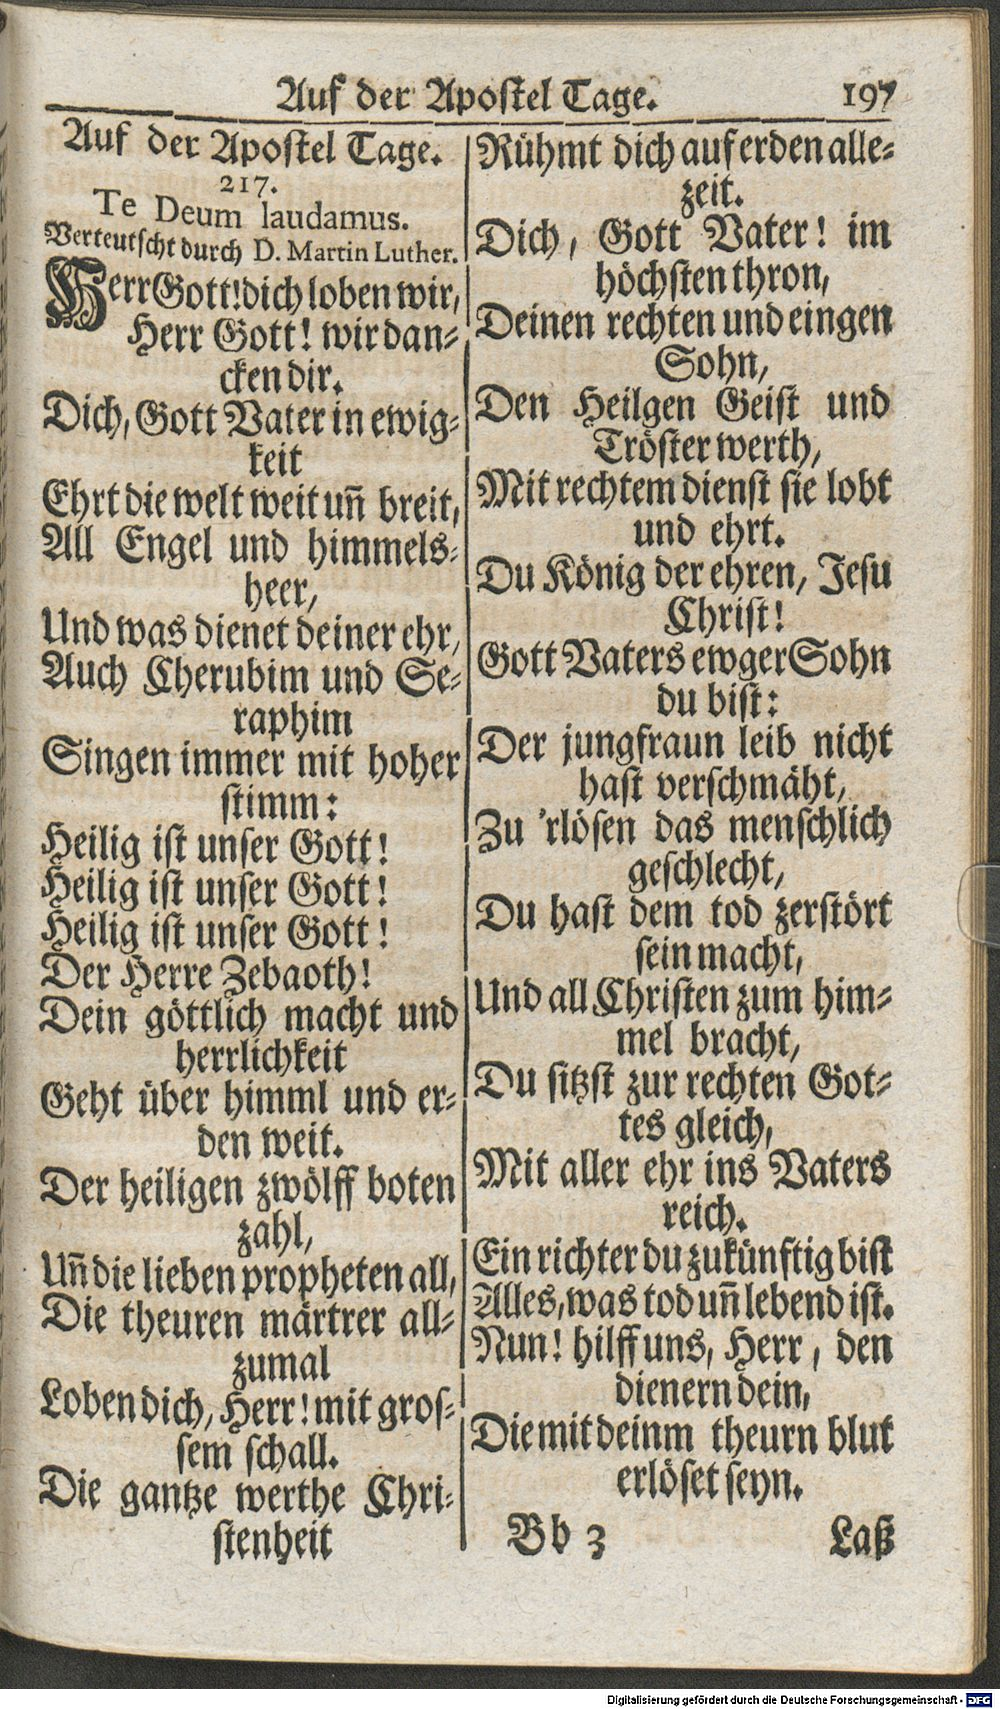 Auf der Apostel Tage. 197
Auf der Apostel Tage.
217.
Te Deum laudamus.
Verteutscht durch D. Martin Luther.
HErr Gott! dich loben wir,
Herr Gott! wir dan-
cken dir.
Dich, Gott Vater in ewig-
keit
Ehrt die welt weit uñ breit,
All Engel und himmels-
heer,
Und was dienet deiner ehr,
Auch Cherubim und Se-
raphim
Singen immer mit hoher
stimm:
Heilig ist unser Gott!
Heilig ist unser Gott!
Heilig ist unser Gott!
Der Herre Zebaoth!
Dein göttlich macht und
herrlichkeit
Geht über himml und er-
den weit.
Der heiligen zwölff boten
zahl,
Uñ die lieben propheten all,
Die theuren märtrer all-
zumal
Loben dich, Herr! mit gros-
sem schall.
Die gantze werthe Chri-
stenheit
Rühmt dich auf erden alle-
zeit.
Dich, Gott Vater! im
höchsten thron,
Deinen rechten und eingen
Sohn,
Den Heilgen Geist und
Tröster werth,
Mit rechtem dienst sie lobt
und ehrt.
Du König der ehren, Jesu
Christ!
Gott Vaters ewger Sohn
du bist:
Der jungfraun leib nicht
hast verschmäht,
Zu 'rlösen das menschlich
geschlecht,
Du hast dem tod zerstört
sein macht,
Und all Christen zum him-
mel bracht,
Du sitzst zur rechten Got-
tes gleich,
Mit aller ehr ins Vaters
reich.
Ein richter du zukünftig bist
Alles, was tod uñ lebend ist.
Nun! hilff uns, Herr, den
dienern dein,
Die mit deinm theurn blut
erlöset seyn.
Bb 3 Laß
Digitalisierung gefördert durch die Deutsche Forschungsgemeinschaft - DFG